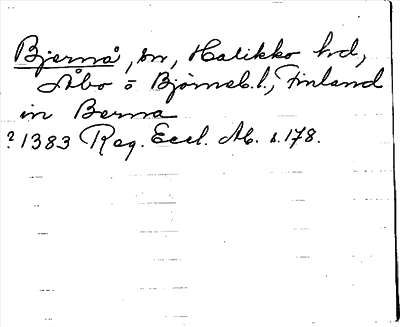 Bjernå, sn, Halikko hd,
Åbo o Björneb. l., Finland
in Berna
? 1383 Reg. Eccl. Ab. s. 178.